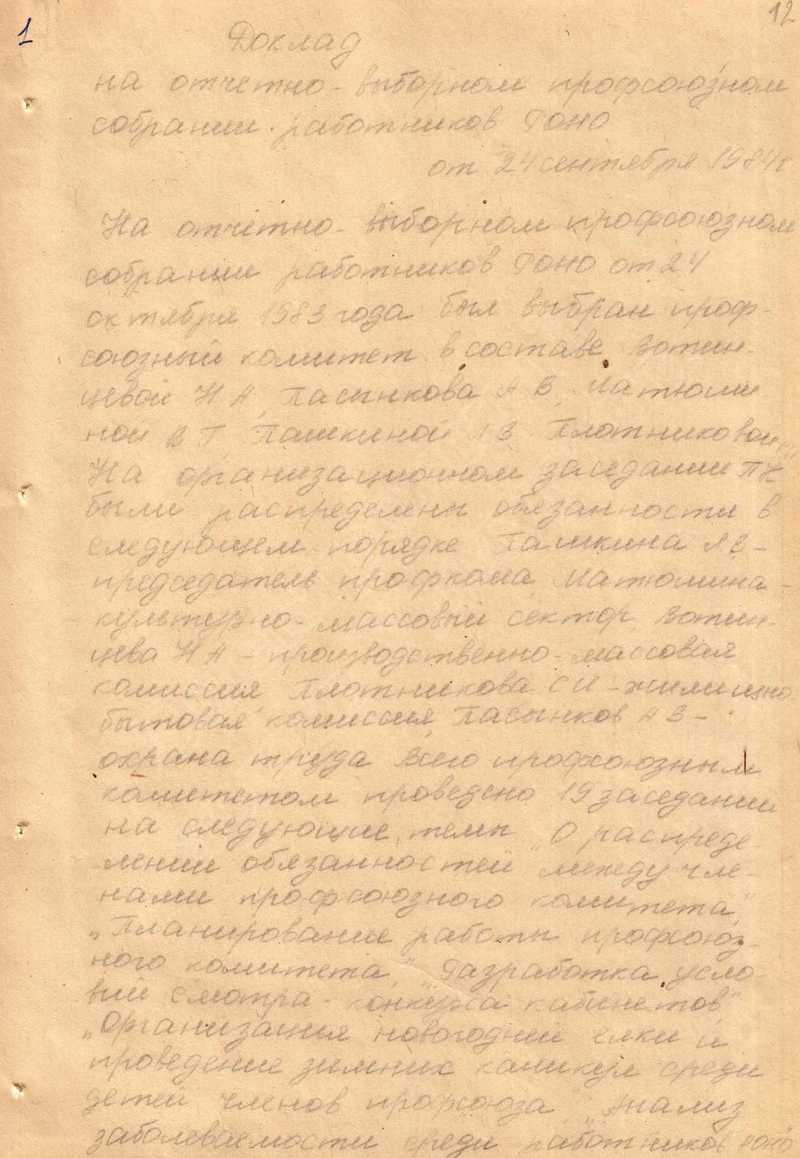 1
12
Доклад
на отчетно-выборном профсоюзном
собрании работников Роно
от 24 сентября 1984 г
На отчетно-выборном профсоюзном
собрании работников Роно от 24
октября 1983 года был выбран проф-
союзный комитет в составе Вотин-
цевой Н А, Пасынкова А В, Матюми
ной В Г, Пашкиной Л В Плотниковой
На организационном заседании ПК
были распределены обязанности в
следующем порядке Пашкина Л В -
председатель профкома, Матюмина -
культурно-массовый сектор, Вотин-
цева Н А - производственно-массовая
комиссия Плотникова С И - жилищно-
бытовая комиссия, Пасынков А В -
охрана труда Всего профсоюзным
комитетом проведено 19 заседаний
на следующие темы „О распреде-
лении обязанностей между чле-
нами профсоюзного комитета,"
„Планирование работы профсоюз-
ного комитета," „Разработка усло-
вий смотра-конкурса кабинетов"
„Организация новогодней елки и
проведение зимних каникул среди
детей членов профсоюза „Анализ
заболеваемости среди работников роно"